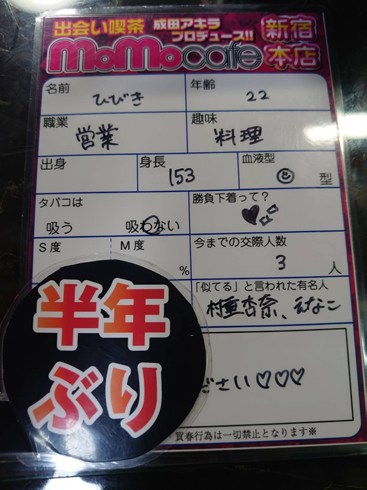 出会い喫茶 成田アキラ プロデュース!!
MoMo cafe 新宿本店
名前 ひびき 年齢 22
職業 営業 趣味 料理
出身 身長 153 血液型 型
タバコは 勝負下着って?
吸う 吸わない
S度 M度 今までの交際人数
% 3 人
「似てる」と言われた有名人
村重杏奈、えなこ
半年
ぶり
ださい♡♡♡
買春行為は一切禁止となります※